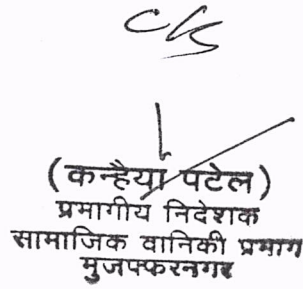 (कन्हैया पटेल)
प्रभागीय निदेशक
सामाजिक वानिकी प्रभाग
मुजफ्फरनगर